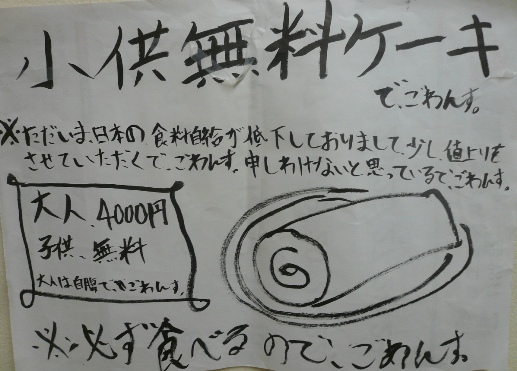 小供無料ケーキ
でごわんす。
※ただいま、日本の食料自給が低下しておりまして、少し値上りを
させていただくで、ごわんす。申しわけないと思っているで、ごわんす。
大人、4000円
子供、無料
大人は自腹でごわんす。
※必ず食べるので、ごわんす。